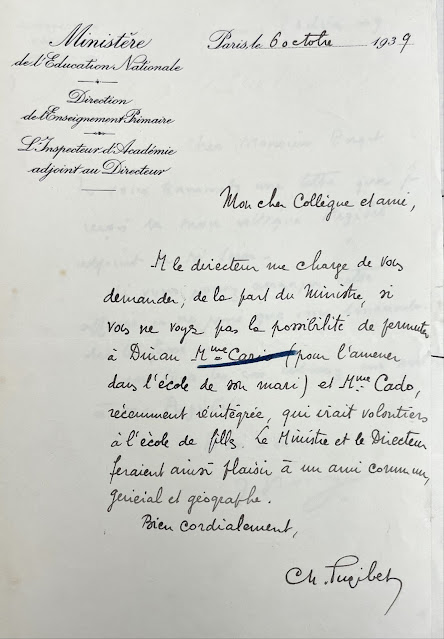 Ministère
de l'Education Nationale
Direction
de l'Enseignement Primaire
L'Inspecteur d'Académie
adjoint au Directeur
Paris, le 6 octobre 1939
Mon cher Collègue et ami,
M le directeur me charge de vous
demander, de la part du Ministre, si
vous ne voyez pas la possibilité de permuter
à Dinan Mme Caric (pour l'amener
dans l'école de son mari) et Mme Cado,
récemment réintégrée, qui irait volontiers
à l'école de filles. Le Ministre et le Directeur
feraient ainsi plaisir à un ami commun,
général et géographe.
Bien cordialement,
Ch. Pugibet